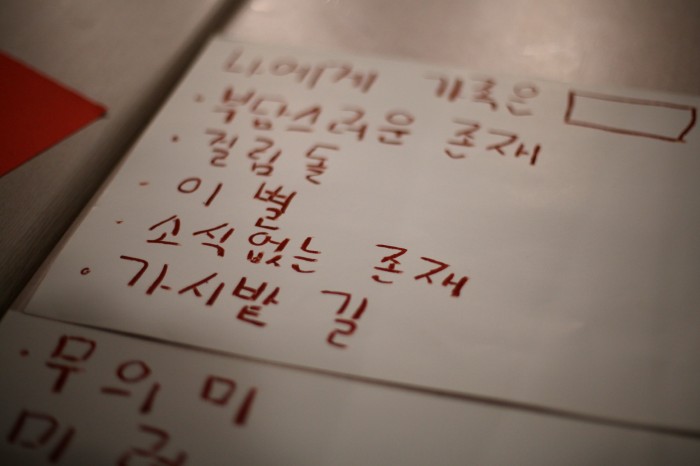 나에게 가족은
· 부담스러운 존재
· 걸림돌
· 이별
· 소식없는 존재
· 가시밭 길
· 무의미
미